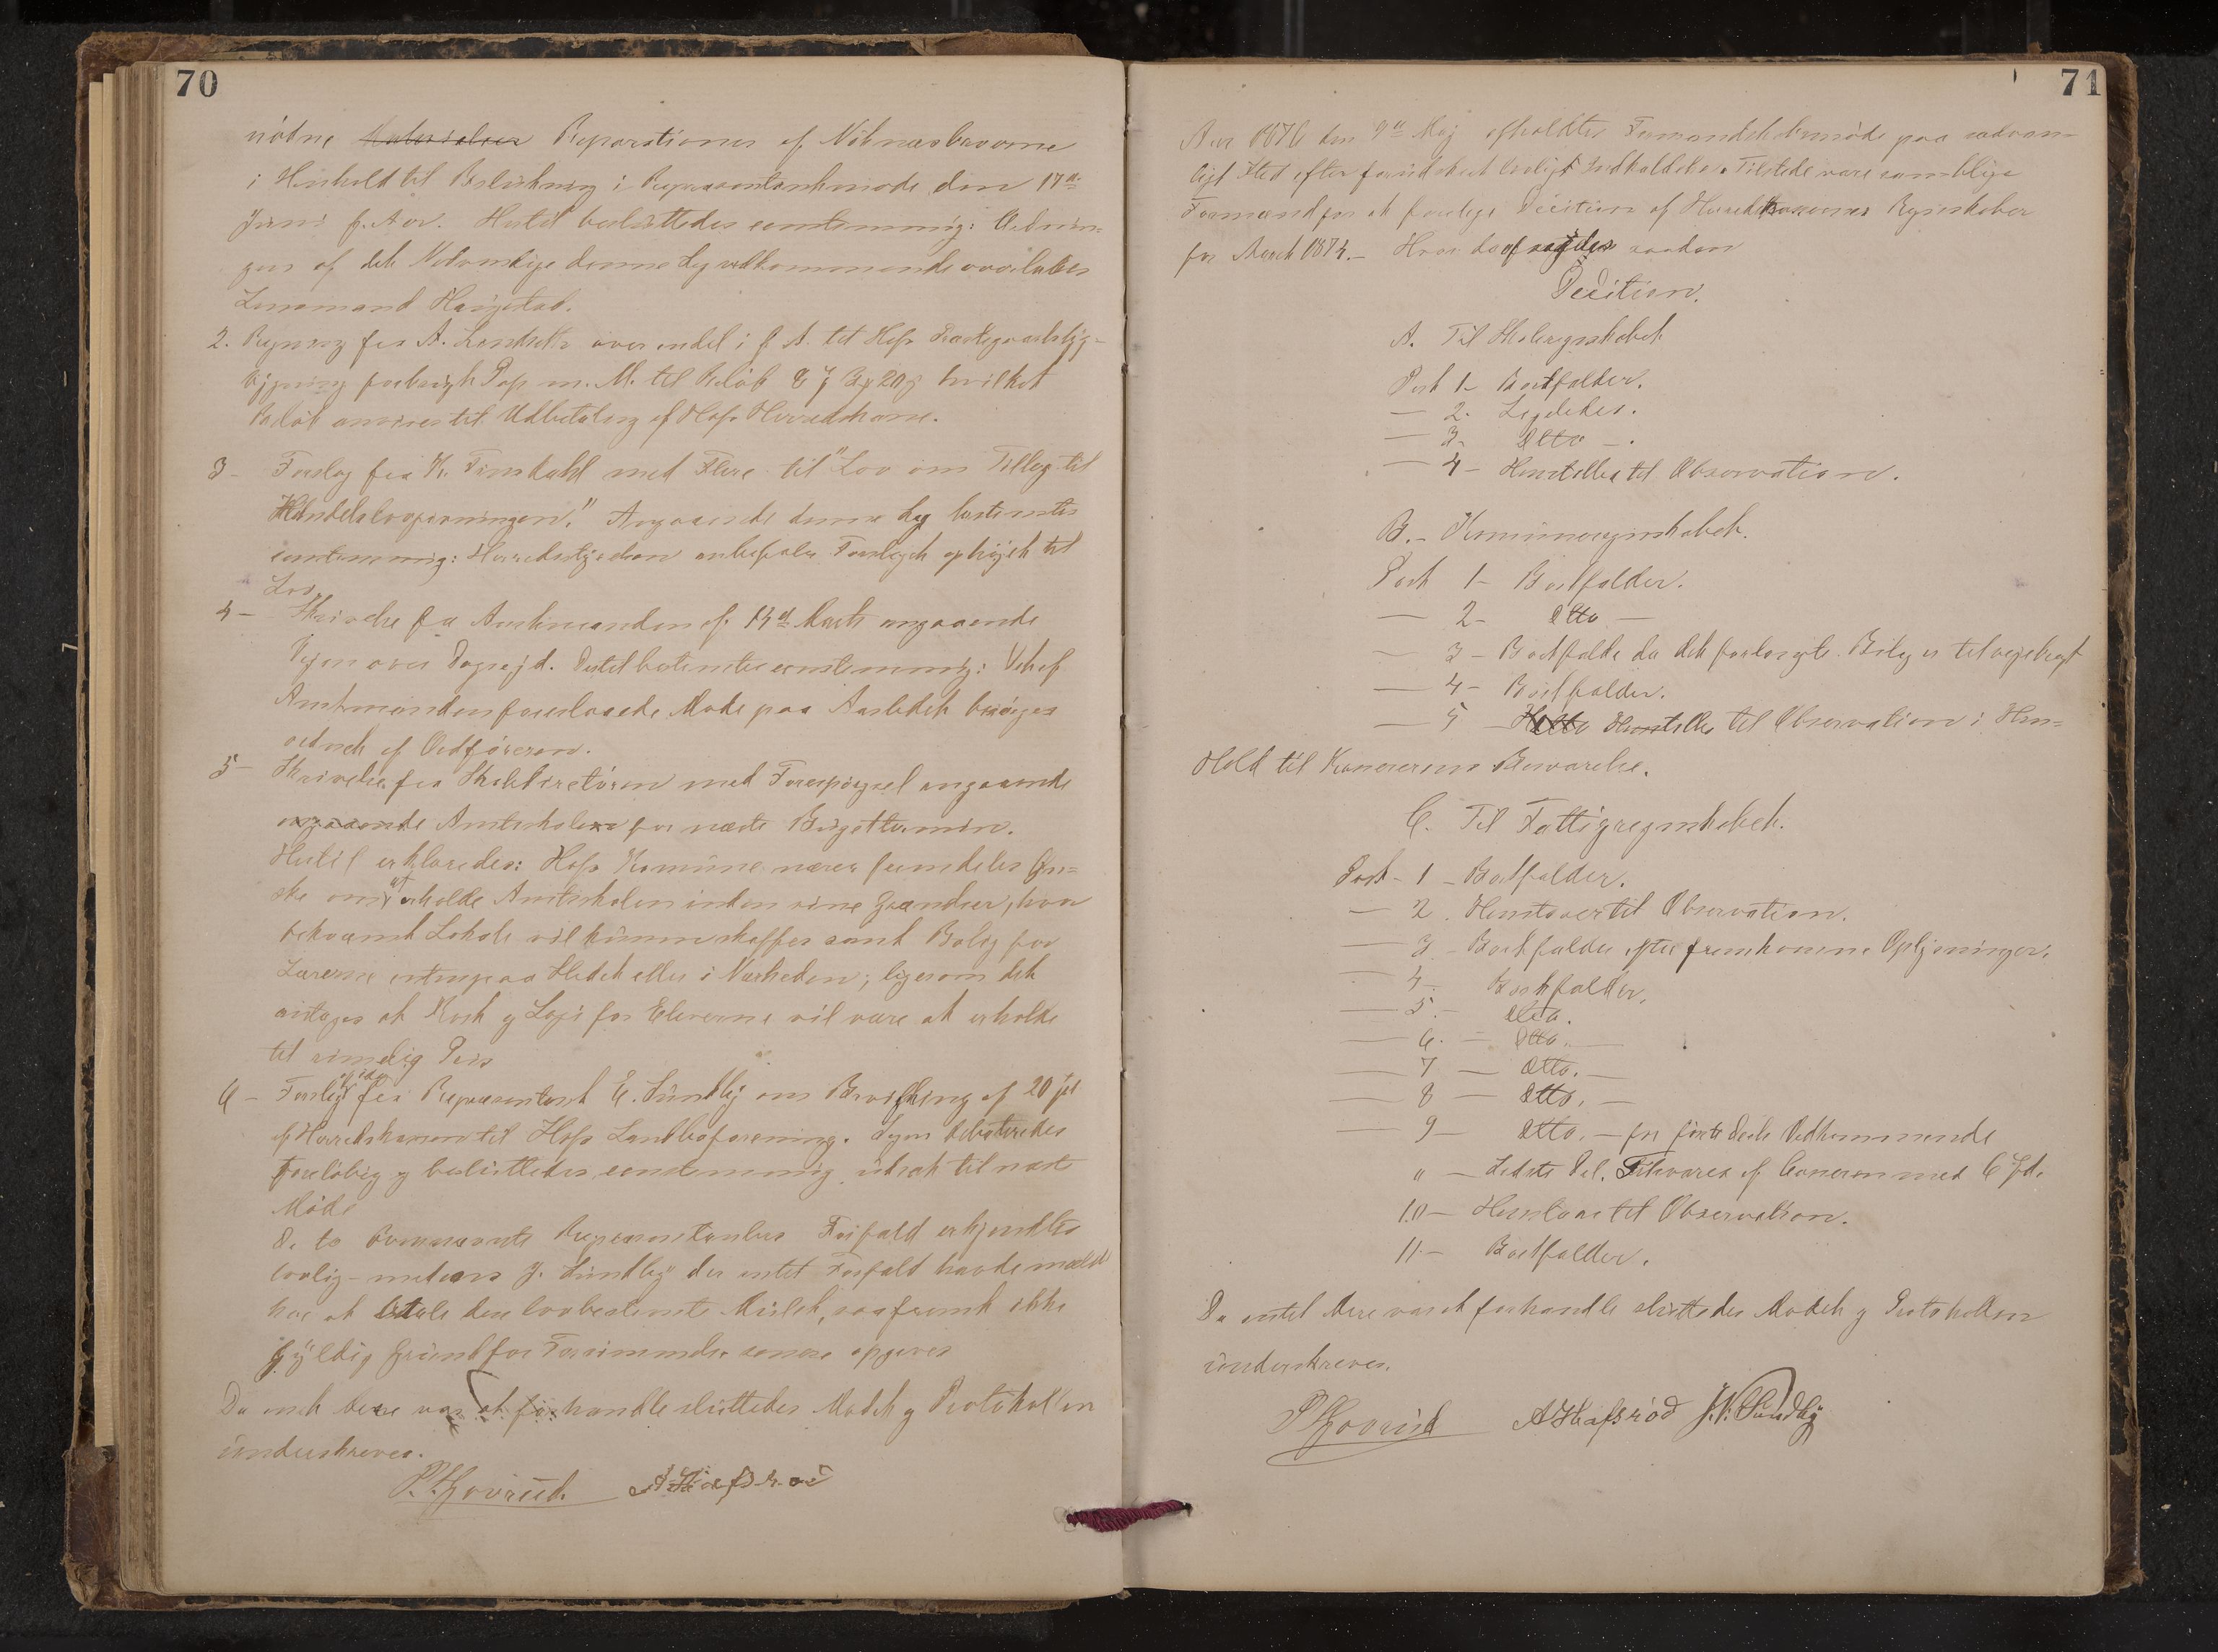 70
nödne Materialier Reparationer af Nöbnæsbroerne
i Henhold til Beslutning i Repræsentantmöde den 17de
Juni f. Aar. Hertil besluttedes eenstemmig: Ordnin-
gen af det Nödvendige denne Sag vedkommende overlades
Lensmand Hasjestad.
2. Regning fra A. Landseth over endel i f. A. til Hofs Præstegaards
bygning forbrugt Pap m. M. til Beløb 8 20 hvilket
Beløb anvises til Udbetaling af Hofs Herredskasse.
3 - Forslag fra K. Finsdahl med Flere til "Lov om Tillæg til
Handelslovgivningen." Angaaende denne Sag bestemtes
eenstemmig: Herredsstyrelsen anbefaler Forslaget ophöjet til
Lov.
4 - Skrivelse fra Amtmanden af 14de Marts angaaende
Vejen over Dagsejd. Dertil bestemtes eenstemmig: Det af
Amtmanden foreslaaede Møde paa Aastedet besörges
ordnet af Ordföreren.
5 - Skrivelse fra Skoledirektören med Forespörgsel angaaende
angaaende Amtsskolen for næste Budgettermin.
Hertil erklæredes: Hofs Komüne nærer fremdeles Øn-
ske om at erholde Amtsskolen inden sine Grændser, hvor
bekvemt Lokale vil kunne skaffes samt Bolig for
Lærerne enten paa Stedet eller i Nærheden; ligesom det
antages at Kost og Logi for Eleverne vil være at erholde
til rimelig Pris
6 - Forslag fra Repræsentant E. Sündby om Bevilgning af 20 Spd
af Herredskassen til Hofs Landboforening. Sagen debateredes
foreløbig og besluttedes eenstemmig udsat til næste
Möde
De to Repræsentanters Forfald erkjendtes
lovlig - medens J. Sundby der intet Forfald havde meldt
har at betale den lovbestemte Mulct, saafremt ikke
gyldig Grund for Forsömmelse senere opgives
Da intet mere var at forhandle sluttedes Mödet og Protokollen
underskreves.
P. Hovrud. A Hafsröd
71
Aar 1876 den 9de Maj afholdtes Formandskabsmöde paa sædvan-
ligt Sted efter forudskeet lovligt Indkaldelse. Tilstede vare samtlige
Formænd for at foretage Decition af Herredskassernes Regnskaber
for Aaret 1874. - Hvor da afsagdes saadan
Decition.
A. Til Skoleregnskabet
Post 1 - Bortfalder.
— 2. Ligeledes.
— 3. Dtto - .
— 4 - Henstilles til Observation.
B. - Komüneregnskabet.
Post 1 - Bortfalder.
— 2 - Dtto —
— 3 - Bortfalder da det forlangte Bilag er tilvejebragt
— 4 - Bortfalder.
— 5 - Dtto Henstilles til Observation i Hen-
hold til Kassererens Besvarelse.
C. Til Fattigregnskabet.
Post - 1 - Bortfalder.
— 2. Henstaaer til Observation.
— 3 - Bortfalder efter fremkomne Oplysninger.
— 4 - Bortfalder.
— 5. - Dtto.
— 6. - Dtto. —
— 7 - Dtto. —
— 8 - Dtto. —
— 9 - Dtto. - for förste Deels Vedkommende
" - Sidste Del. Tilsvares af Casseren med 6 Spd.
10 - Henstaar til Observation.
11 - Bortfalder.
Da intet Mere var at forhandle sluttedes Mödet og Protokollen
underskreves.
P Hovrud A Hafsröd J. N. Sundby